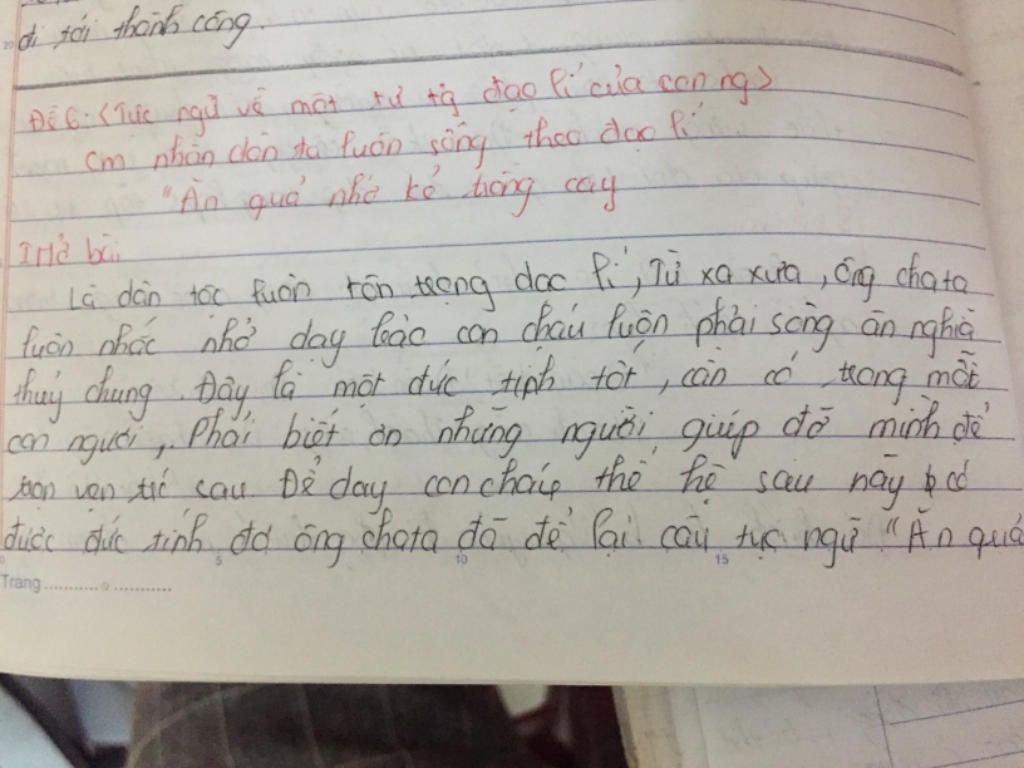 đi tới thành công.
Đề 6: (Tục ngữ về một tư tg đạo lí của con ng)
Cm nhân dân ta luôn sống theo đạo lí
"Ăn quả nhớ kẻ trồng cây
I Mở bài
Là dân tộc luôn tôn trọng đạo lí, Từ xa xưa, ông cha ta
luôn nhắc nhở dạy bảo con cháu luôn phải sống ân nghĩa
thủy chung. Đây là một đức tính tốt, cần có trong mỗi
con người, Phải biết ơn những người giúp đỡ mình để
trọn vẹn trc sau Để dạy con cháu thế hệ sau này có
được đức tính đó ông cha ta đã để lại câu tục ngữ "Ăn quả
5 10 15
Trang